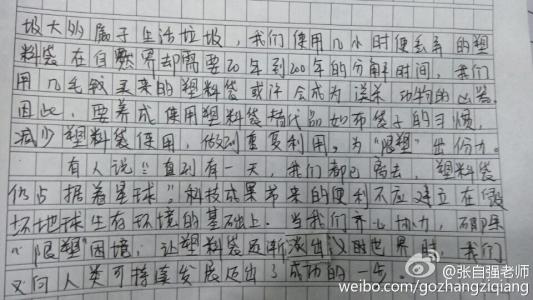 圾大多属于生活垃圾，我们使用几小时便丢弃的塑
料袋在自然界却需要20年到200年的分解时间，我们
用几毛钱买来的塑料袋或许会成为误杀动物的凶器。
因此，要养成使用塑料袋替代品如布袋子的习惯，
减少塑料袋使用，做到重复利用，为“限塑”出份力。
有人说“直到有一天，我们都已离去，塑料袋
仍占据着星球”。科技成果带来的便利不应建立在毁
坏地球生存环境的基础上。当我们齐心协力，
“限塑”困境，让塑料袋逐渐淡出世界时，我们
又向人类可持续发展迈出了成功的一步。
@张自强老师
weibo.com/gozhangziqiang